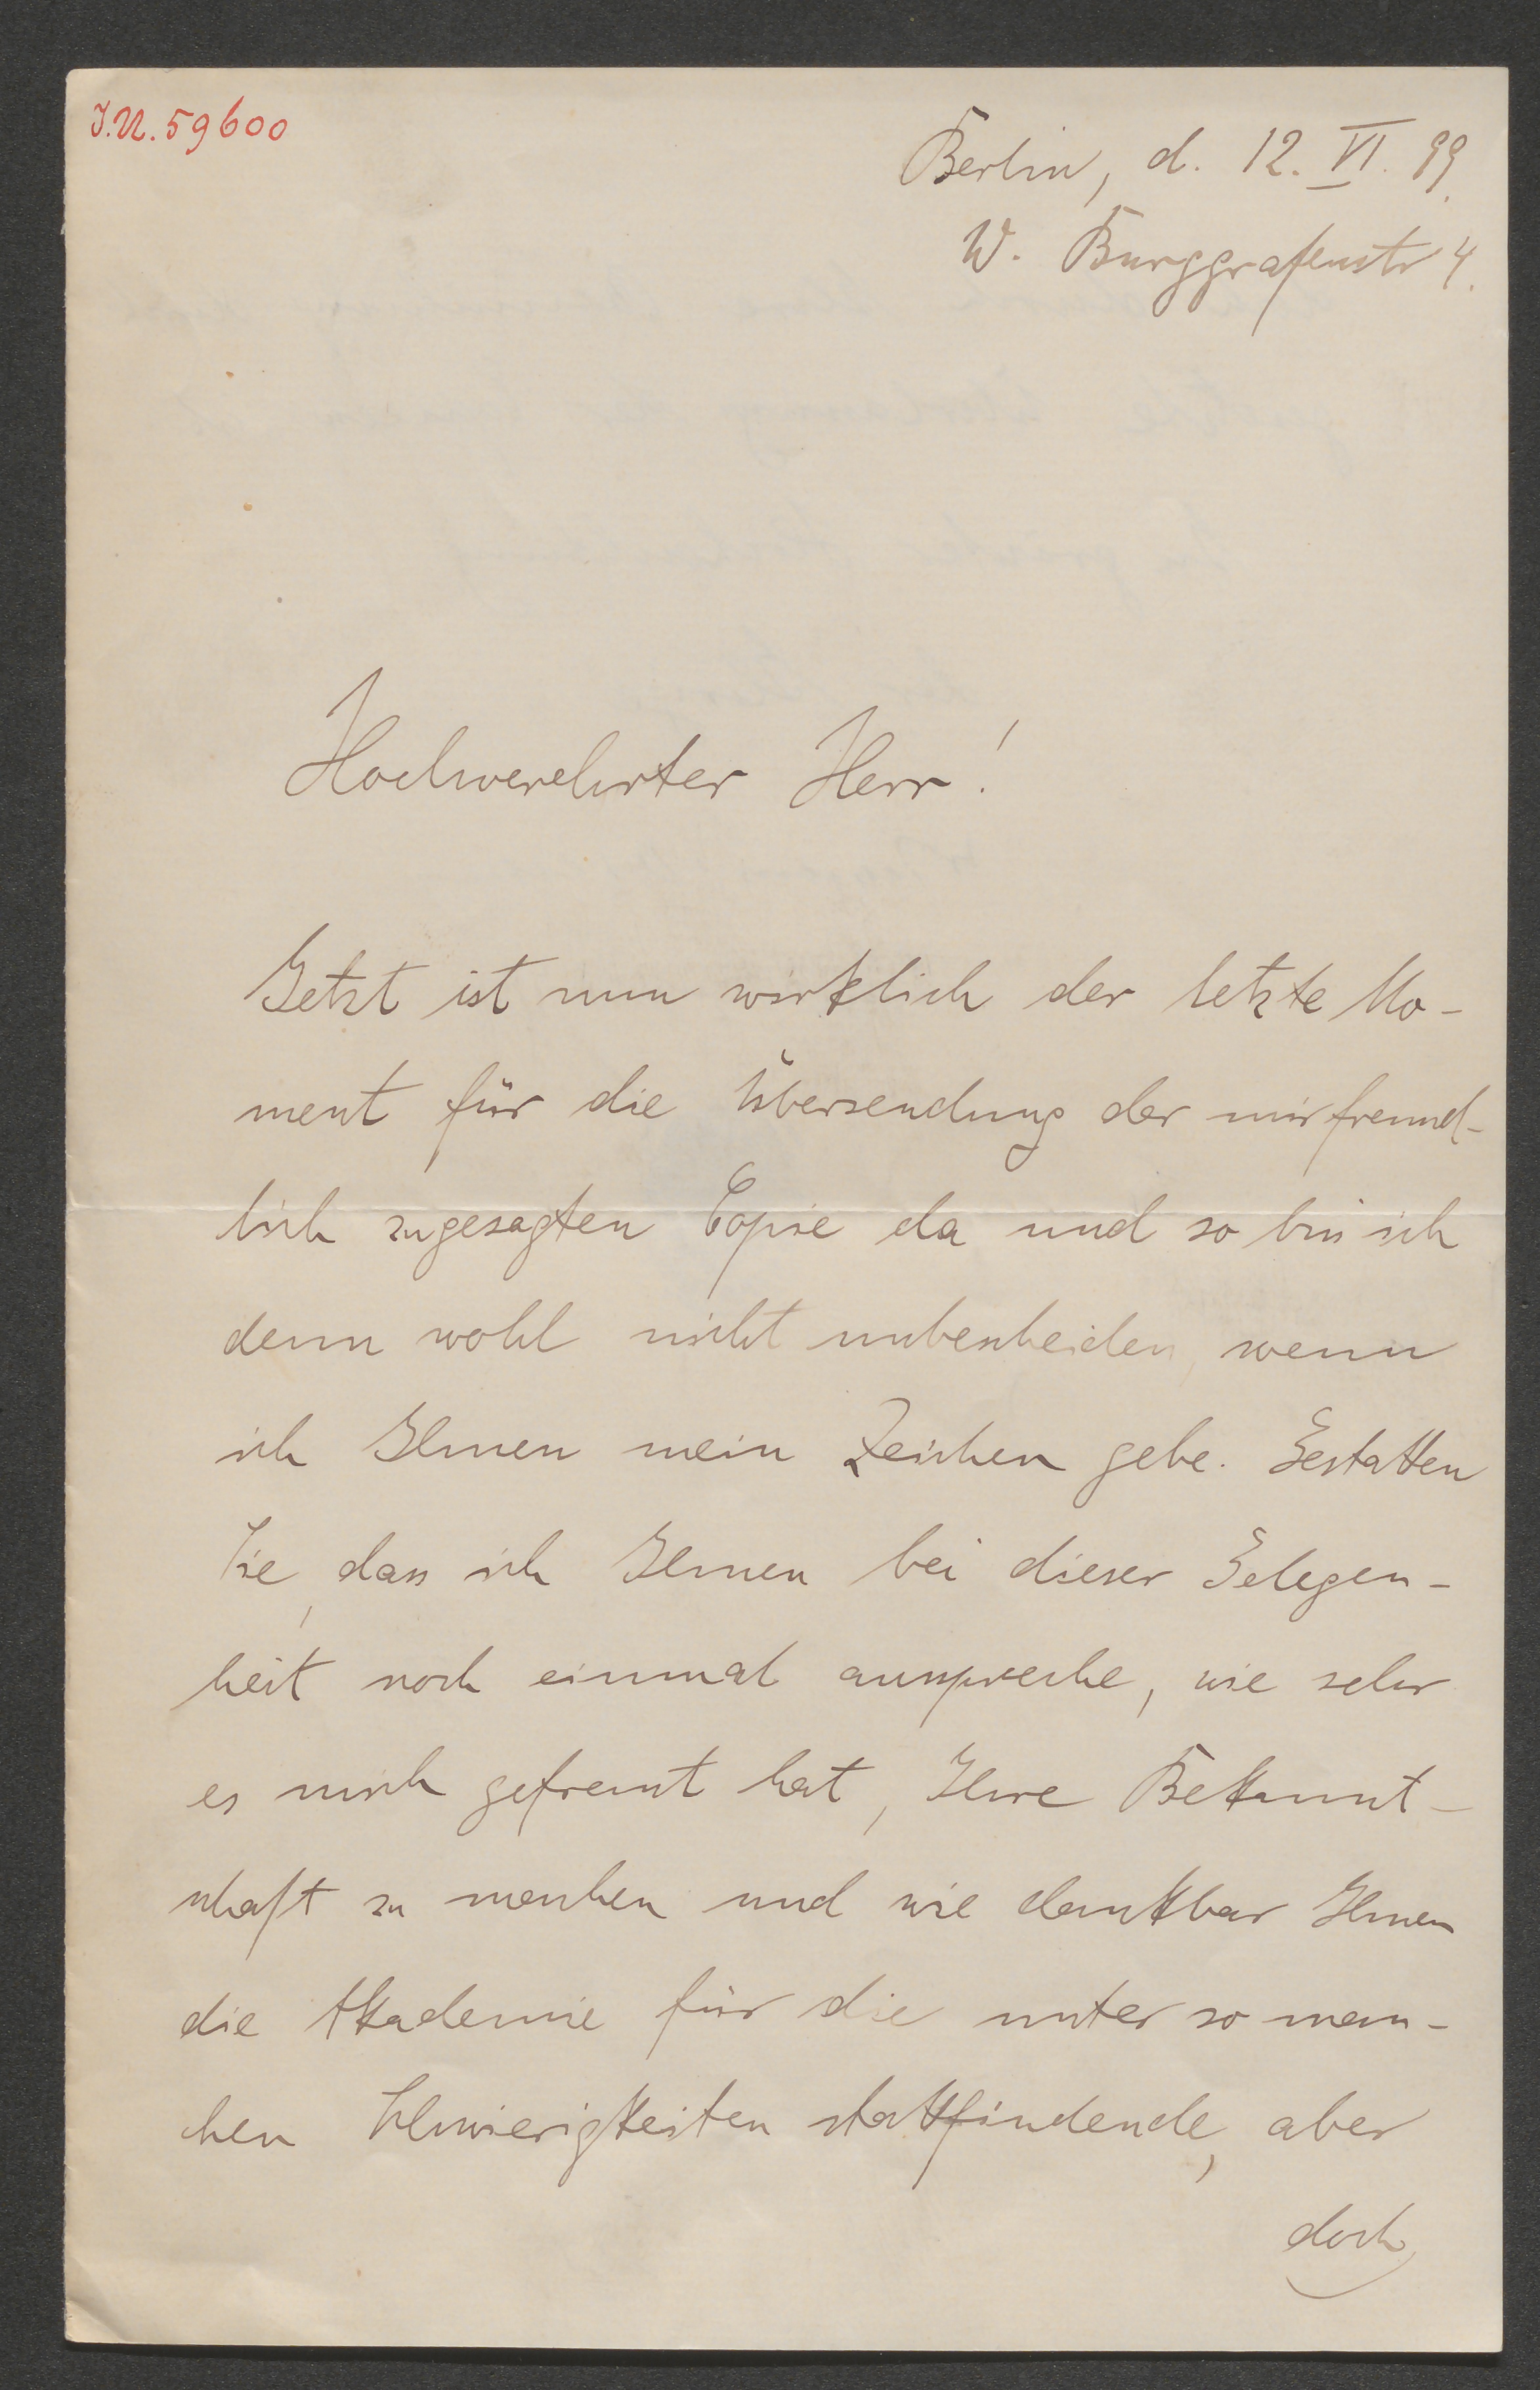 J.N. 59600
Berlin, d. 12. VI. 99.
W. Burggrafenstr 4.
Hochverehrter Herr!
Jetzt ist nun wirklich der letzte Mo-
ment für die Übersendung der mir freund-
lich zugesagten Copie da und so bin ich
denn wohl nicht unbescheiden, wenn
ich Ihnen mein Zeichen gebe. Gestatten
Sie, dass ich Ihnen bei dieser Gelegen-
heit noch einmal ausspreche, wie sehr
es mich gefreut hat, Ihre Bekannt-
schaft zu machen und wie dankbar Ihnen
die Akademie für die unter so man-
chen Schwierigkeiten stattfindende, aber
doch